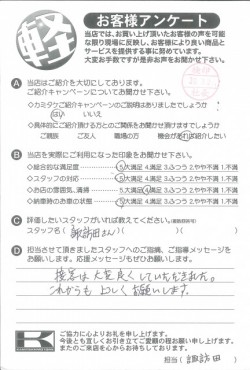 軽
お客様アンケート
当店では、お買い上げ頂いたお客様の声を可能な
限り現場に反映し、お客様により良い商品と
サービスを提供する事に努めています。
大変お手数ですが是非お声をお聞かせ下さい。
A 当店はご紹介を大切にしております。
ご紹介キャンペーンについてお聞かせ下さい。
◇カミタケご紹介キャンペーンのご説明はありましたでしょうか
はい いいえ
◇具体的にご紹介頂ける方とのご関係をお聞かせ頂けますでしょうか
ご親族 ご友人 職場の方 機会があれば紹介したい
B 当店を実際にご利用になった印象をお聞かせ下さい。
◇総合的な満足度 5大満足 4.満足 3.ふつう 2.やや不満 1.不満
◇スタッフの対応 5大満足 4.満足 3.ふつう 2.やや不満 1.不満
◇お店の雰囲気、清掃 5大満足 4.満足 3.ふつう 2.やや不満 1.不満
◇納車時のお車の状態 5大満足 4.満足 3.ふつう 2.やや不満 1.不満
C 評価したいスタッフがいれば教えてください。
スタッフ名( 諏訪田さん )
D 担当させて頂きましたスタッフへのご指摘、ご指導メッセージを
お願いします。応援メッセージもぜひお願いします!
接客は大変良くしていただきました。
これからも よろしくお願いします。
K
ご協力に心よりお礼を申し上げます。
今後とも宜しくお引き立てご愛顧の程お願い申し上げます。
またのご来店を心からお待ちしております。
担当( 諏訪田 )